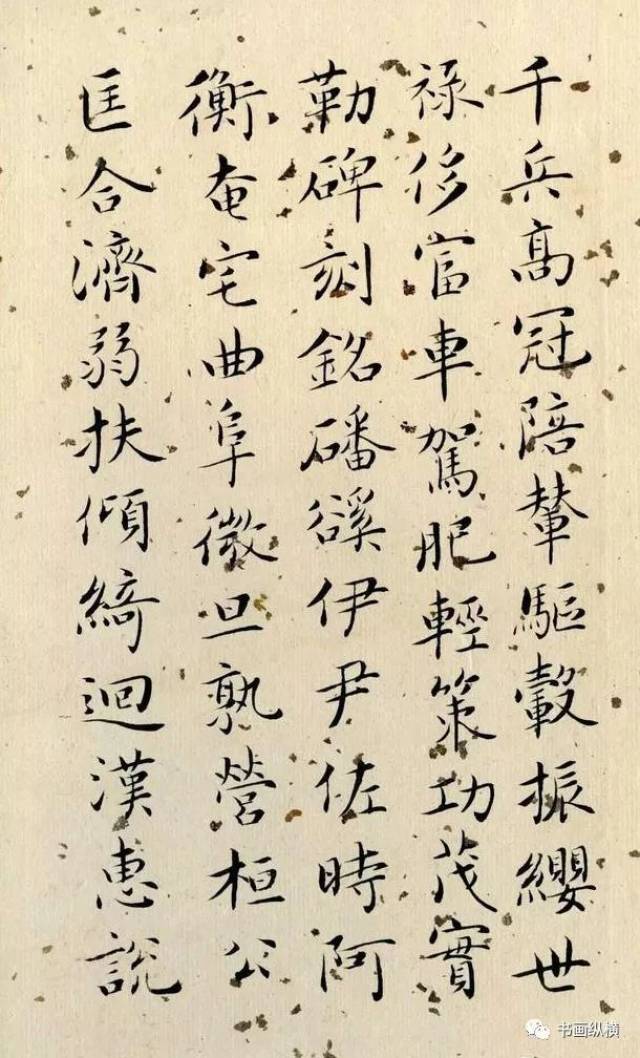 千兵高冠陪輦驅轂振纓世
祿侈富車駕肥輕策功茂實
勒碑刻銘磻谿伊尹佐時阿
衡奄宅曲阜微旦孰營桓公
匡合濟弱扶傾綺迴漢惠說
书画纵横